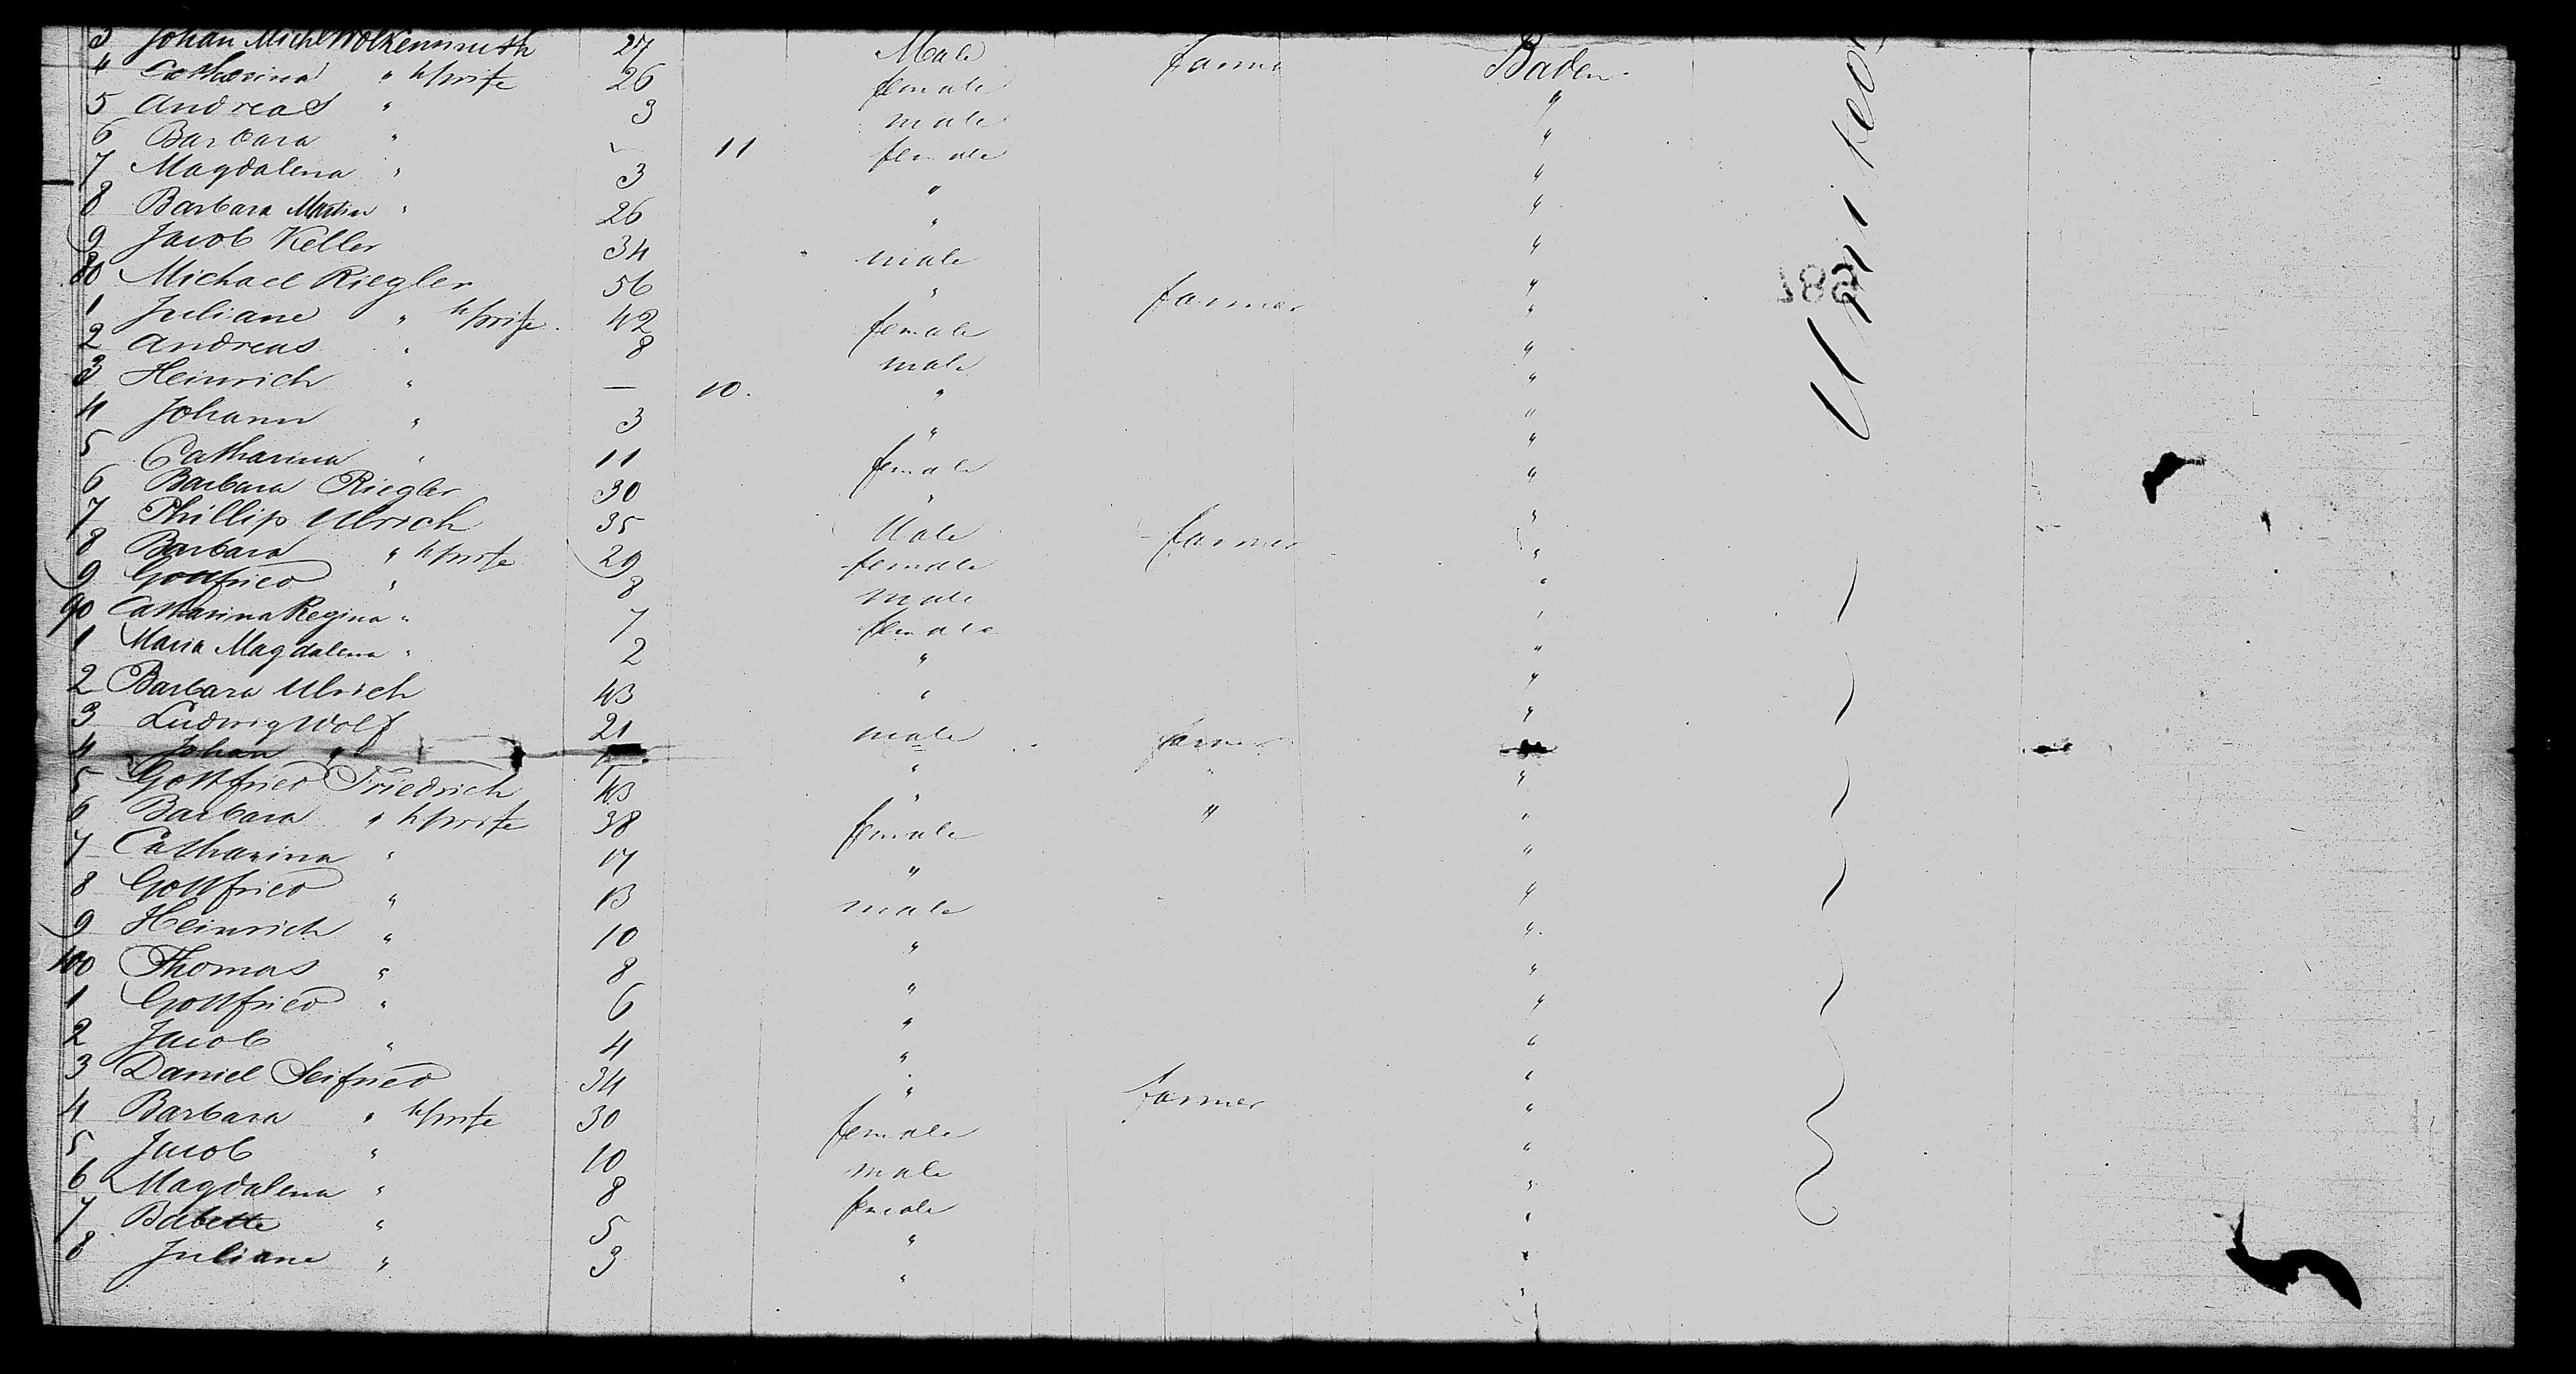 3 Johan Michl Wolkenmuth 27 Male farme Baden.
4 Catharina " h/wife 26 female "
5 Andreas " 3 male "
6 Barbara " 11 female "
7 Magdalena " 3 " "
8 Barbara " 26 " "
9 Jacob Keller 34 male "
80 Michael Riegler 56 " farmer "
1 Juliane " h/wife. 42 female "
2 Andreas " 8 male "
3 Heinrich " — 10. " "
4 Johann " 3 " "
5 Catharina " 11 female "
6 Barbara Riegler 30 " "
7 Phillip Ulrich 35 Male farmer "
8 Barbara " h/wife 29 female "
9 Gottfried " 8 male "
90 Catharina Regina " 7 female "
1 Maria Magdalena " 2 " "
2 Barbara Ulrich 43 " "
3 Ludwig Wolf 21 male farmer "
4 Johan " " " "
5 Gottfried Friedrich 43 " " "
6 Barbara " h/wife 38 female "
7 Catharina " 17 " "
8 Gottfried " 13 male "
9 Heinrich " 10 " "
100 Thomas " 8 " "
1 Gottfried " 6 " "
2 Jacob " 4 " "
3 Daniel Seifried 34 " farmer "
4 Barbara " h/wife 30 female "
5 Jacob " 10 male "
6 Magdalena " 8 female "
7 Babette " 5 " "
8 Juliane " 3 " "